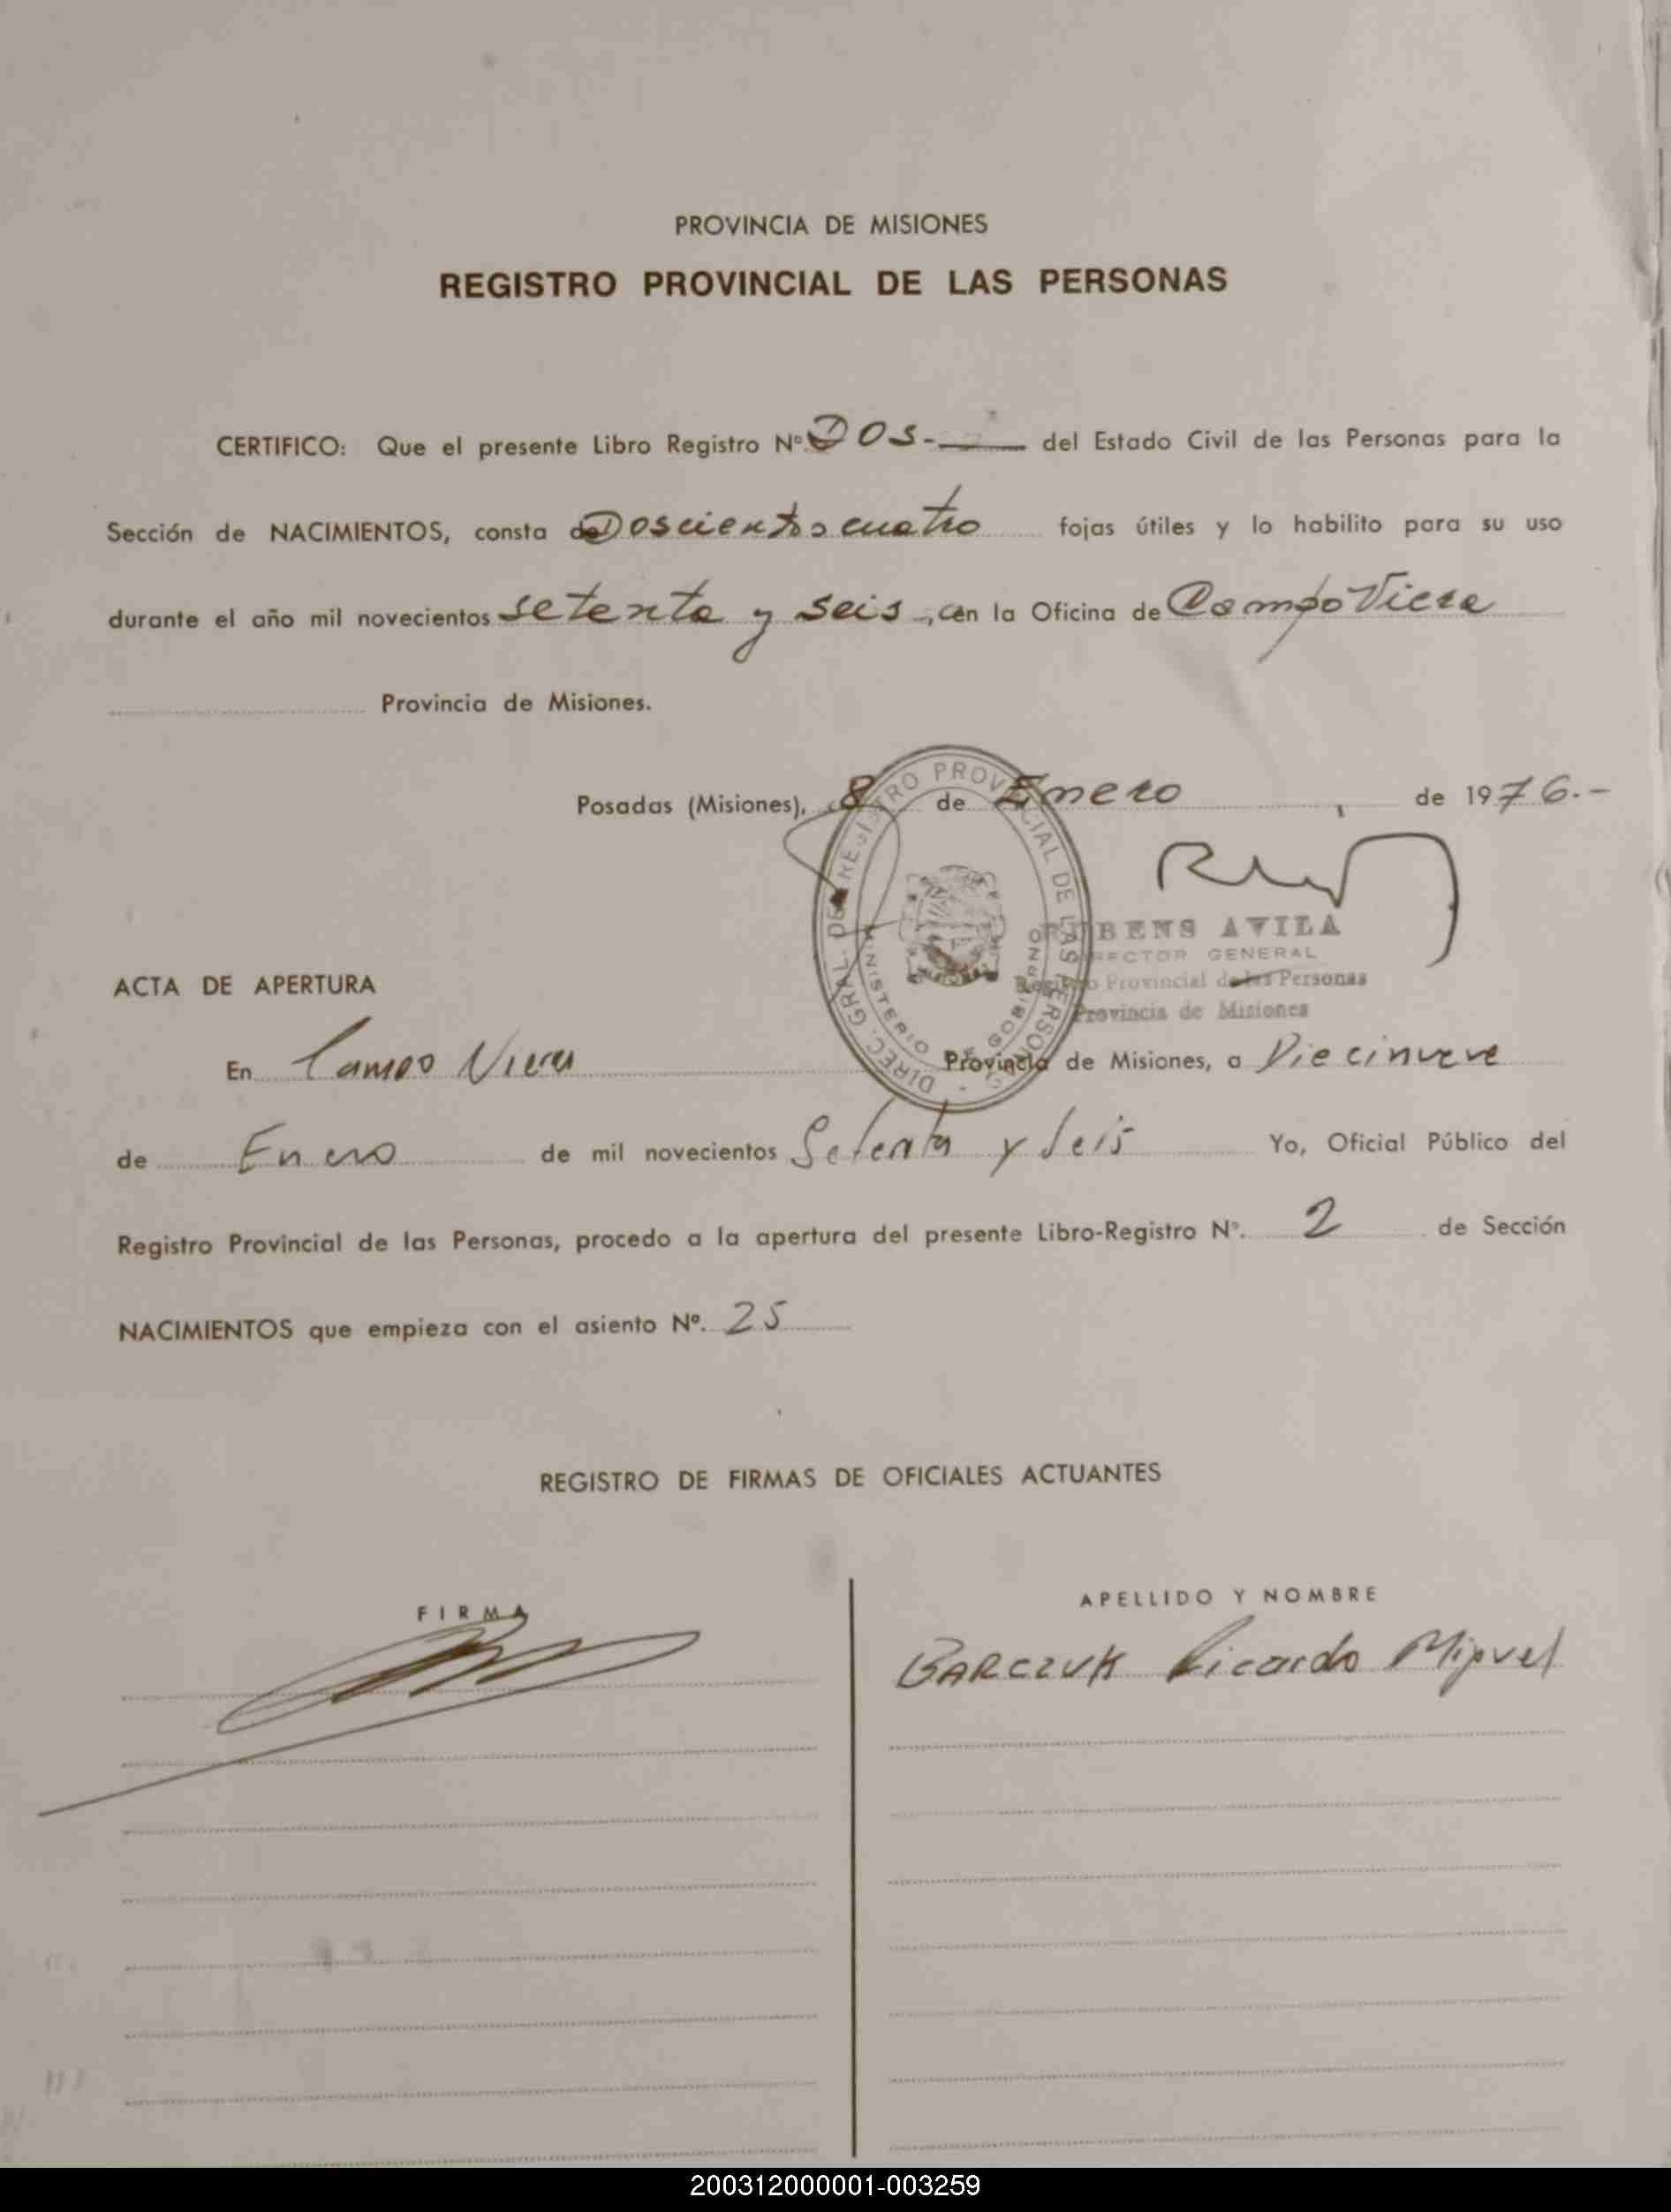 PROVINCIA DE MISIONES
REGISTRO PROVINCIAL DE LAS PERSONAS
CERTIFICO: Que el presente Libro Registro Nº Dos.- del Estado Civil de las Personas para la
Sección de NACIMIENTOS, consta de Doscientos cuatro fojas útiles y lo habilito para su uso
durante el año mil novecientos setenta y seis.-, en la Oficina de Campo Viera
Provincia de Misiones.
Posadas (Misiones), 8 de Enero de 1976.-
DIREC. GRAL. DEL REGISTRO PROVINCIAL DE LAS PERSONAS
MINISTERIO DE GOBIERNO
RUBENS AVILA
DIRECTOR GENERAL
Registro Provincial de las Personas
Provincia de Misiones
ACTA DE APERTURA
En Campo Viera Provincia de Misiones, a Diecinueve
de Enero de mil novecientos Setenta y Seis Yo, Oficial Público del
Registro Provincial de las Personas, procedo a la apertura del presente Libro-Registro Nº. 2 de Sección
NACIMIENTOS que empieza con el asiento Nº. 25
REGISTRO DE FIRMAS DE OFICIALES ACTUANTES
FIRMA
APELLIDO Y NOMBRE
BARCZUK Ricardo Miguel
200312000001-003259